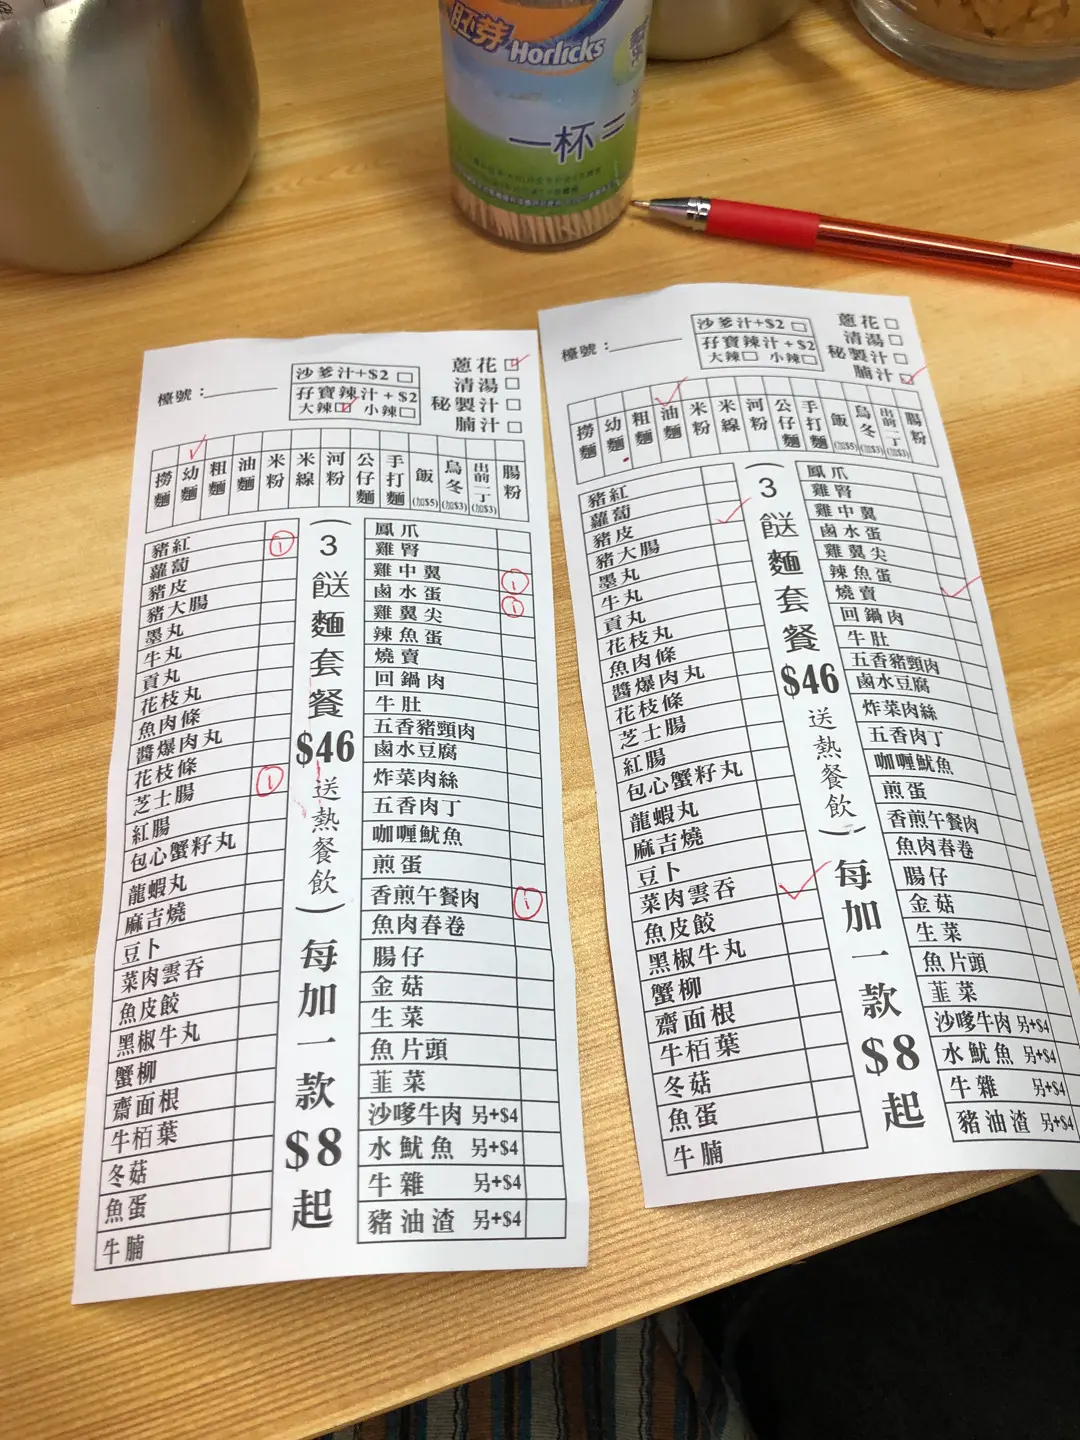 胚芽
Horlicks
一杯=
檯號：
沙爹汁+$2
孖寶辣汁+$2
大辣 小辣
蔥花
清湯
秘製汁
腩汁
撈麵
幼麵
粗麵
油麵
米粉
米線
河粉
公仔麵
手打麵
飯(加$5)
烏冬(加$3)
出前一丁(加$3)
腸粉
豬紅 ①
蘿蔔
豬皮
豬大腸
墨丸
牛丸
貢丸
花枝丸
魚肉條
醬爆肉丸
花枝條
芝士腸 ①
紅腸
包心蟹籽丸
龍蝦丸
麻吉燒
豆卜
菜肉雲吞
魚皮餃
黑椒牛丸
蟹柳
齋面根
牛栢葉
冬菇
魚蛋
牛腩
（3餸麵套餐$46送熱餐飲）每加一款$8起
鳳爪
雞腎
雞中翼
鹵水蛋 ①
雞翼尖 ①
辣魚蛋
燒賣
回鍋肉
牛肚
五香豬頸肉
鹵水豆腐
炸菜肉絲
五香肉丁
咖喱魷魚
煎蛋
香煎午餐肉 ①
魚肉春卷
腸仔
金菇
生菜
魚片頭
韮菜
沙嗲牛肉 另+$4
水魷魚 另+$4
牛雜 另+$4
豬油渣 另+$4
檯號：
沙爹汁+$2
孖寶辣汁+$2
大辣 小辣
蔥花
清湯
秘製汁
腩汁
撈麵
幼麵
粗麵
油麵
米粉
米線
河粉
公仔麵
手打麵
飯(加$5)
烏冬(加$3)
出前一丁(加$3)
腸粉
豬紅
蘿蔔
豬皮
豬大腸
墨丸
牛丸
貢丸
花枝丸
魚肉條
醬爆肉丸
花枝條
芝士腸
紅腸
包心蟹籽丸
龍蝦丸
麻吉燒
豆卜
菜肉雲吞
魚皮餃
黑椒牛丸
蟹柳
齋面根
牛栢葉
冬菇
魚蛋
牛腩
（3餸麵套餐$46送熱餐飲）每加一款$8起
鳳爪
雞腎
雞中翼
鹵水蛋
雞翼尖
辣魚蛋
燒賣
回鍋肉
牛肚
五香豬頸肉
鹵水豆腐
炸菜肉絲
五香肉丁
咖喱魷魚
煎蛋
香煎午餐肉
魚肉春卷
腸仔
金菇
生菜
魚片頭
韮菜
沙嗲牛肉 另+$4
水魷魚 另+$4
牛雜 另+$4
豬油渣 另+$4